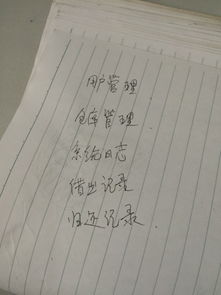 用户管理
仓库管理
系统日志
借出记录
归还记录